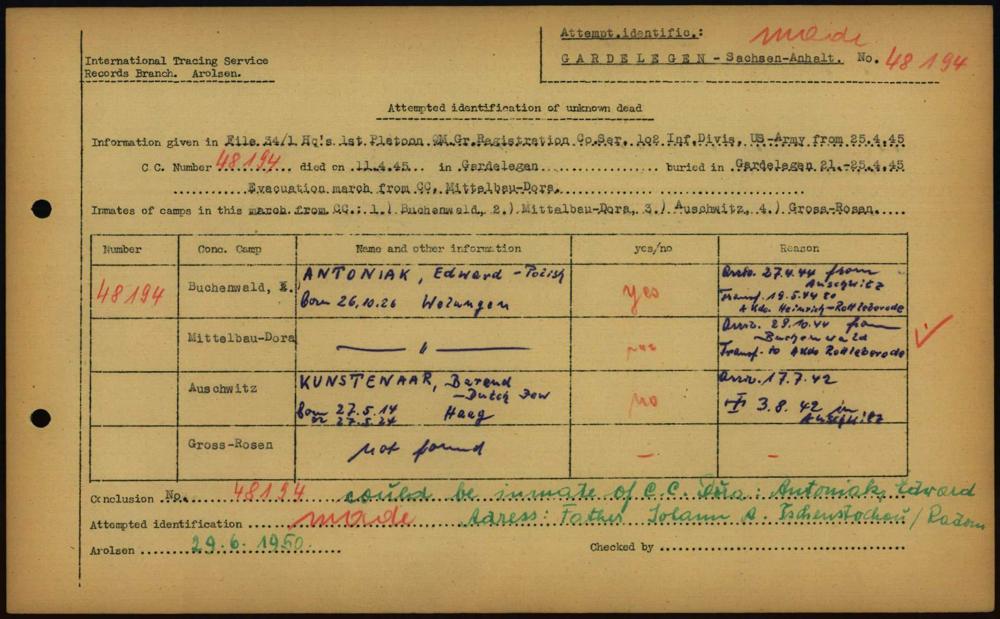 Attempt.identific.: made
International Tracing Service
GARDELEGEN - Sachsen-Anhalt. No. 48 194
Records Branch. Arolsen.
Attempted identification of unknown dead
Information given in File 34/1 Hq's 1st Platoon QM.Gr.Registration Co.Ser. 102 Inf.Divis. US-Army from 25.4.45
C C. Number 48194 died on 11.4.45 in Gardelegen buried in Gardelegen 21.-25.4.45
Evacuation march from CC. Mittelbau-Dora.
Inmates of camps in this march from CC.: 1.) Buchenwald, 2.) Mittelbau-Dora, 3.) Auschwitz, 4.) Gross-Rosen.
Number Conc. Camp Name and other information yes/no Reason
48194 Buchenwald, ANTONIAK, Edward - Polish yes Arriv. 27.4.44 from
Auschwitz
born 26.10.26 Welungen Transf. 19.5.44 to
A Kdo. Heinrich-Rottleberode
Mittelbau-Dora — " — Arriv. 29.10.44 from
Buchenwald
Transf. to AKdo Rottleberode
Auschwitz KUNSTENAAR, Barend no Arriv. 17.7.42
- Dutch Jew
born 27.5.14 Haag 3.8.42 in
or 27.5.24 Auschwitz
Gross-Rosen not found - -
Conclusion No. 48194 could be inmate of C.C. Dora: Antoniak, Edward
Attempted identification made Adress: Father Johann A. Tschenstochau / Radom
Arolsen 29.6.1950. Checked by